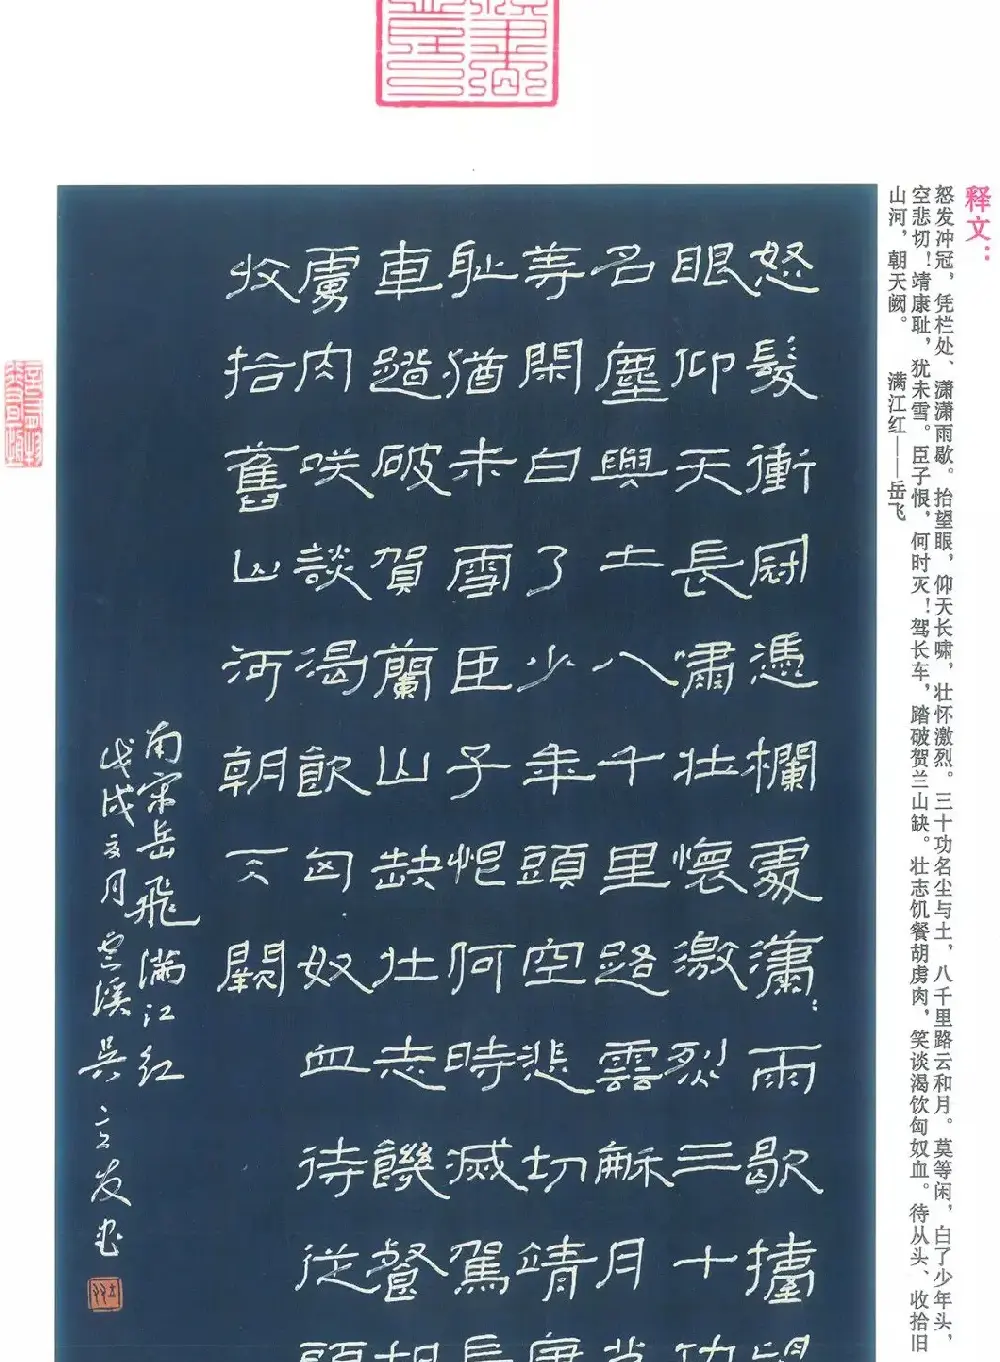 释文：
怒发冲冠，凭栏处、潇潇雨歇。抬望眼，仰天长啸，壮怀激烈。三十功名尘与土，八千里路云和月。莫等闲，白了少年头，
空悲切！靖康耻，犹未雪。臣子恨，何时灭！驾长车，踏破贺兰山缺。壮志饥餐胡虏肉，笑谈渴饮匈奴血。待从头、收拾旧
山河，朝天阙。 满江红——岳飞
怒髮衝冠憑欄處瀟:雨歇擡望
眼仰天長嘯壯懷激烈三十功
名塵與土八千里路雲龢月莫
等閑白了少年頭空悲切靖康
耻猶未雪臣子恨何時滅駕長
車蹈破賀蘭山缺壯志饑餐胡
虜肉咲談渴飲匈奴血待從頭
收拾舊山河朝天闕
南宋岳飛滿江红
戊戌亥月雲溪吴立发书